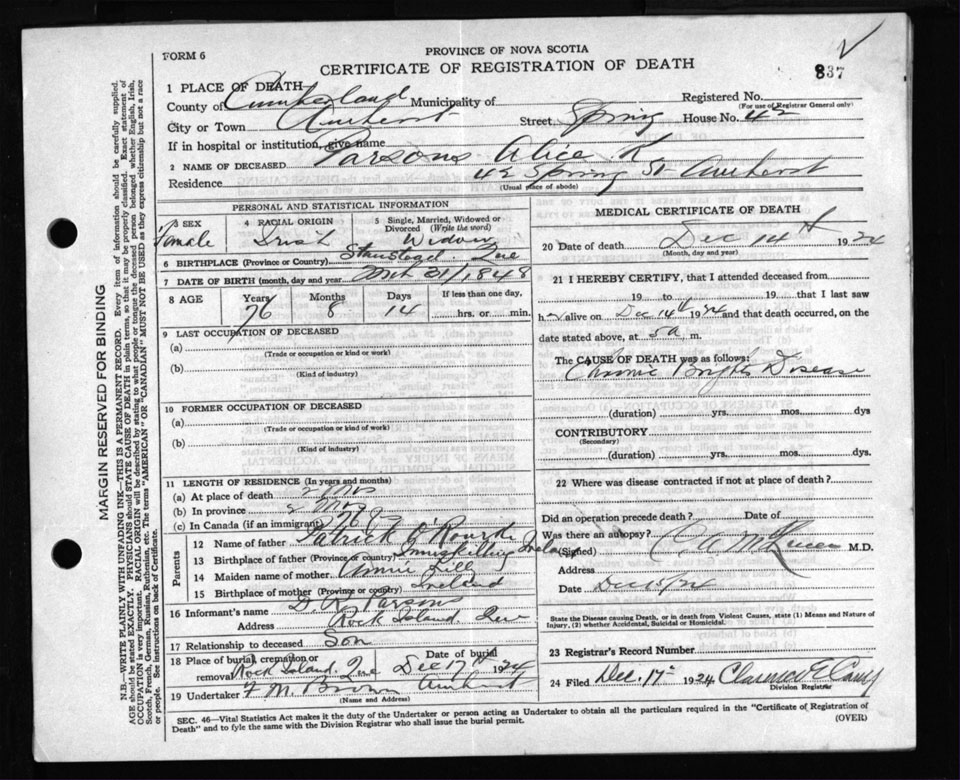 PROVINCE OF NOVA SCOTIA
FORM 6
CERTIFICATE OF REGISTRATION OF DEATH
837
1 PLACE OF DEATH—
Registered No.
(For use of Registrar General only)
County of Cumberland Municipality of
City or Town Amherst Street Spring House No. 42
If in hospital or institution, give name
2 NAME OF DECEASED Parsons Alice K
Residence 42 Spring St Amherst
(Usual place of abode)
PERSONAL AND STATISTICAL INFORMATION
3 SEX Female
4 RACIAL ORIGIN Irish
5 Single, Married, Widowed or Divorced (Write the word) Widow
6 BIRTHPLACE (Province or Country) Stanstead. Que
7 DATE OF BIRTH (month, day and year) 31/1848
8 AGE Years 76 Months 8 Days 14 If less than one day, hrs. or min.
9 LAST OCCUPATION OF DECEASED
(a)
(Trade or occupation or kind or work)
(b)
(Kind of industry)
10 FORMER OCCUPATION OF DECEASED
(a)
(Trade or occupation or kind of work)
(b)
(Kind of industry)
11 LENGTH OF RESIDENCE (In years and months)
(a) At place of death 2 Mos
(b) In province 2 Mos
(c) In Canada (if an immigrant) 76
Parents
12 Name of father Patrick O'Rourke
13 Birthplace of father (Province or country) Inniskilling Ireland
14 Maiden name of mother Annie Lill
15 Birthplace of mother (Province or country) Ireland
16 Informant's name D. R. Parsons
Address Rock Island. Que
17 Relationship to deceased Son
18 Place of burial, cremation or removal Rock Island. Que Date of burial Dec 17th 1924
19 Undertaker F. M. Brown Amherst
(Name and Address)
MEDICAL CERTIFICATE OF DEATH
20 Date of death Dec 14th 1924
(Month, day and year)
21 I HEREBY CERTIFY, that I attended deceased from
19 to 19 that I last saw
her alive on Dec 14th 1924 and that death occurred, on
date stated above, at 5 a. m.
The CAUSE OF DEATH was as follows:
Chronic Brights Disease
(duration) yrs. mos. dys
CONTRIBUTORY
(Secondary)
(duration) yrs. mos. dys.
22 Where was disease contracted if not at place of death?
Did an operation precede death? Date of
Was there an autopsy?
(Signed) M.D.
Address
Date Dec 15/24
State the Disease causing Death, or in death from Violent Causes, state (1) Means and Nature of
Injury, (2) whether Accidental, Suicidal or Homicidal.
23 Registrar's Record Number
24 Filed Dec. 17th 1924 Clarence E
Division Registrar
SEC. 46—Vital Statistics Act makes it the duty of the Undertaker or person acting as Undertaker to obtain all the particulars required in the "Certificate of Registration of
Death" and to fyle the same with the Division Registrar who shall issue the burial permit.
(OVER)
MARGIN RESERVED FOR BINDING
N.B.—WRITE PLAINLY WITH UNFADING INK—THIS IS A PERMANENT RECORD. Every item of information should be carefully supplied.
AGE should be stated EXACTLY. PHYSICIANS should STATE CAUSE OF DEATH in plain terms, so that it may be properly classified. Exact statement of
OCCUPATION is very important. RACIAL ORIGIN will be described by stating to what people or tongue the deceased person belonged whether English, Irish,
Scotch, French, German, Russian, Ruthenian, etc. The terms "AMERICAN" OR "CANADIAN" MUST NOT BE USED as they express citizenship but not a race
of people. See instructions on back of Certificate.